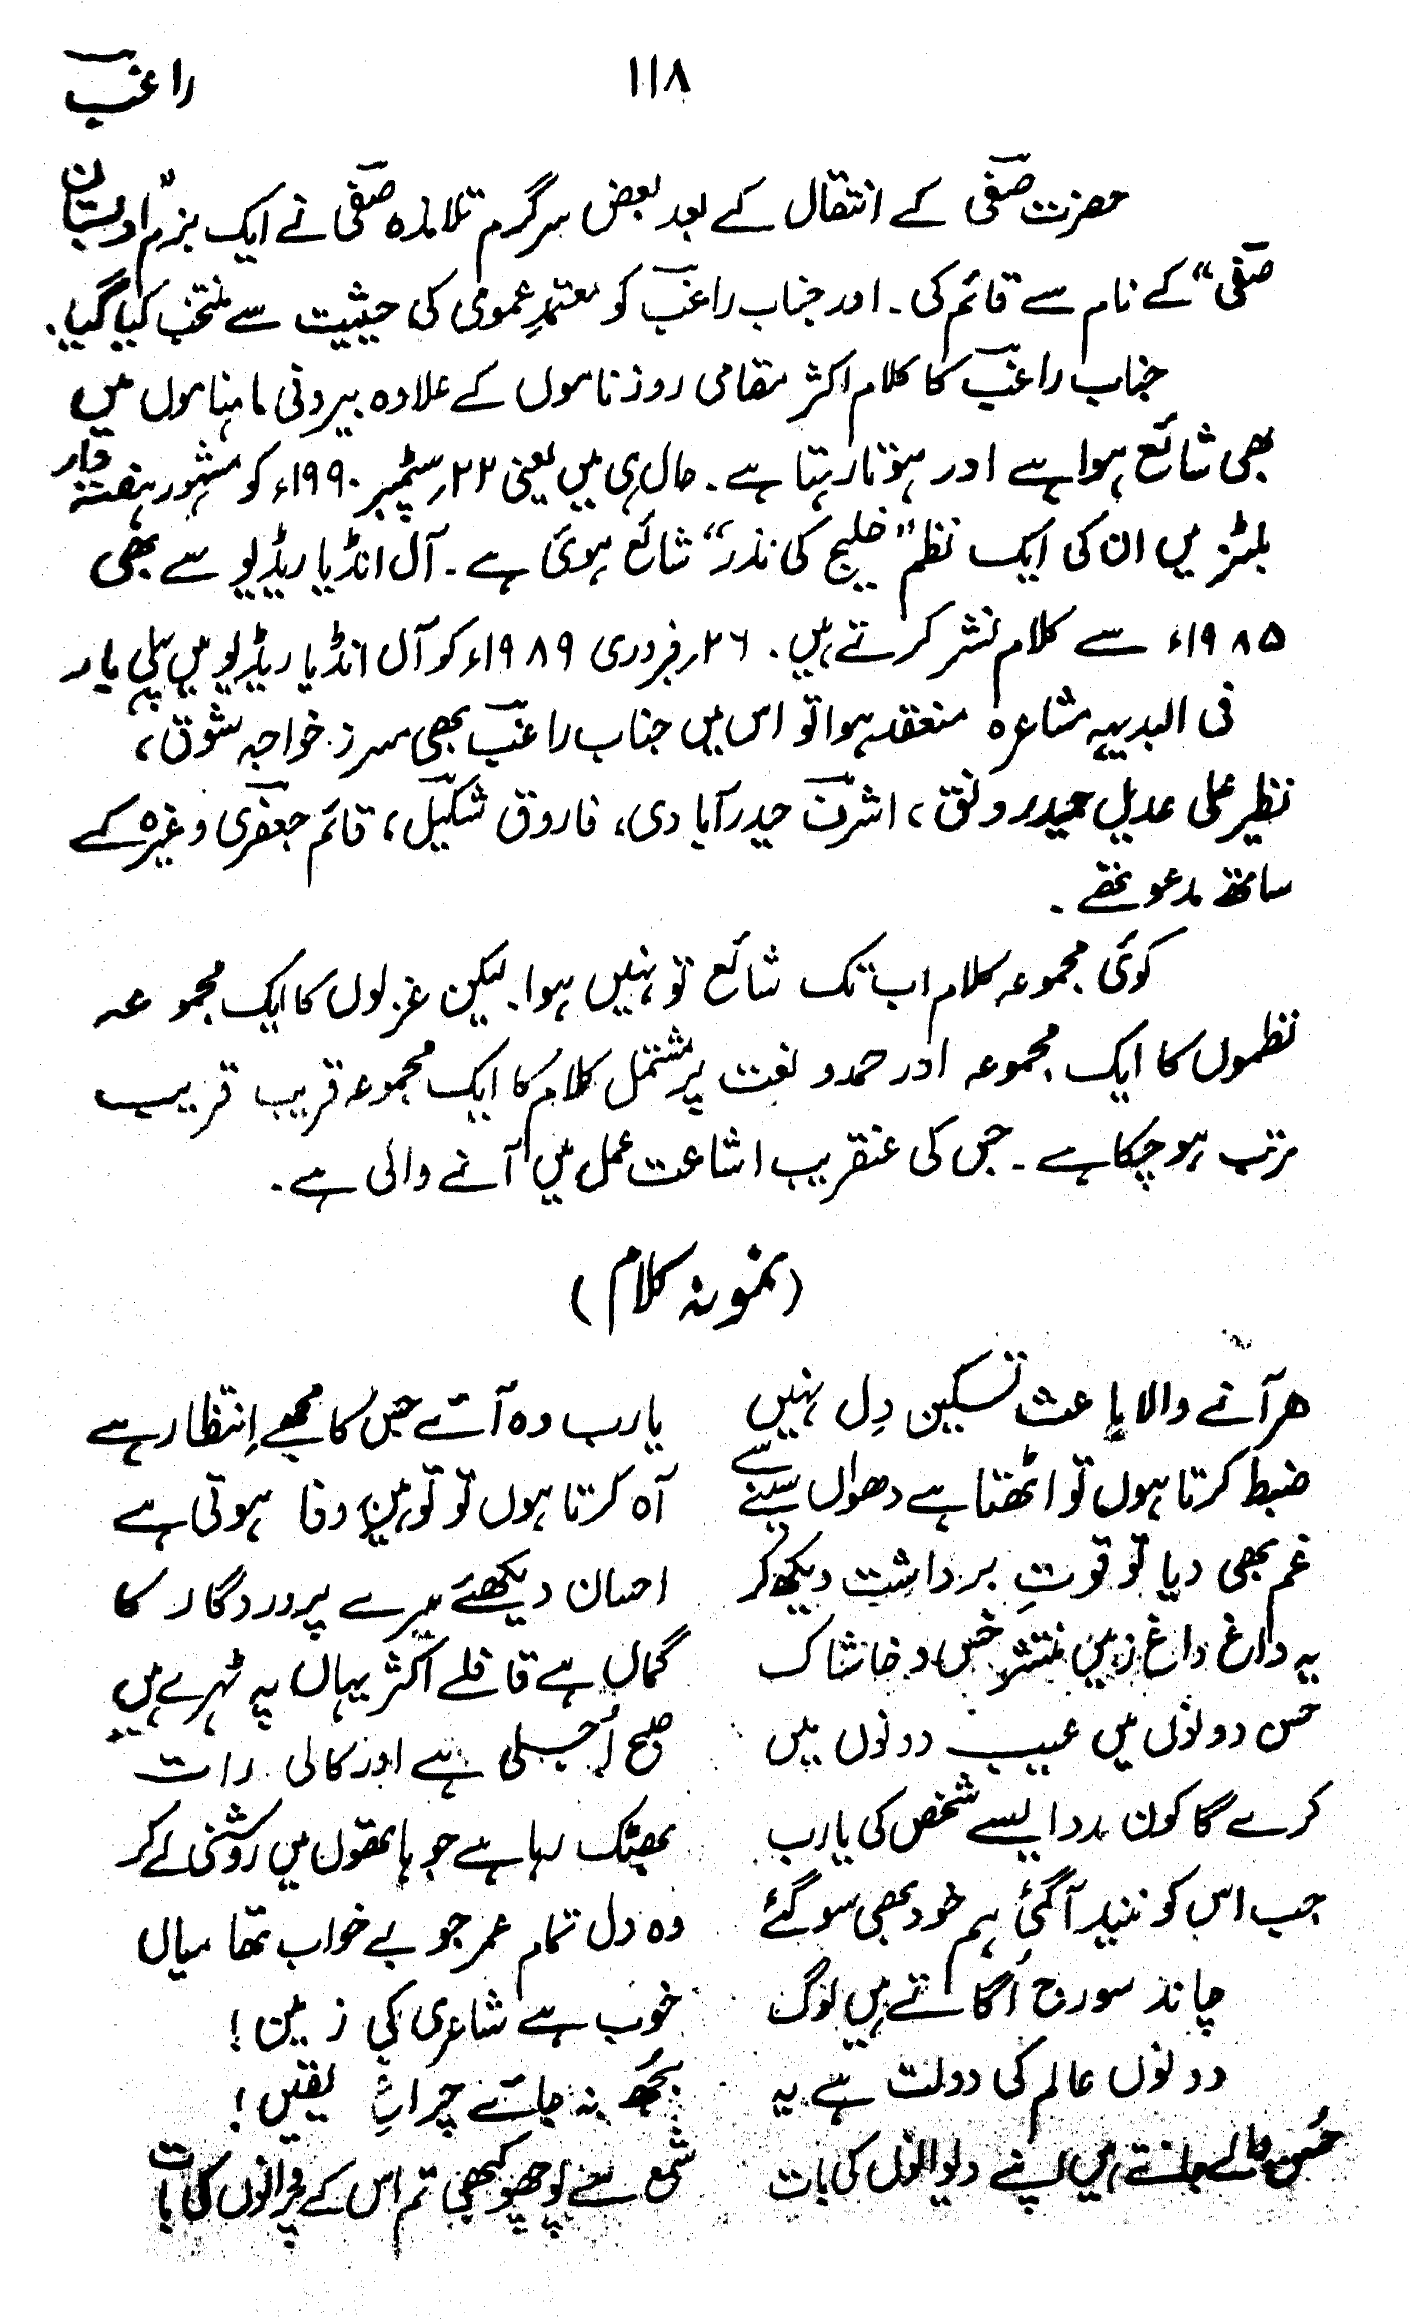 ۱۱۸
راغبؔ
حضرت صفیؔ کے انتقال کے بعد بعض سرگرم تلامذہ صفیؔ نے ایک بزم "ادبستان
صفیؔ" کے نام سے قائم کی۔ اور جناب راغبؔ کو معتمدِ عمومی کی حیثیت سے منتخب کیا گیا۔
جناب راغبؔ کا کلام اکثر مقامی روزناموں کے علاوہ بیرونی ماہناموں میں
بھی شائع ہوا ہے اور ہوتا رہتا ہے۔ حال ہی میں یعنی ۲۲؍ستمبر ۱۹۹۰ء کو مشہور ہفتہ وار
بلٹز میں ان کی ایک نظم "خلیج کی نذر" شائع ہوئی ہے۔ آل انڈیا ریڈیو سے بھی
۱۹۸۵ء سے کلام نشر کرتے ہیں۔ ۲۶؍فروری ۱۹۸۹ء کو آل انڈیا ریڈیو میں پہلی بار
فی البدیہہ مشاعرہ منعقد ہوا تو اس میں جناب راغبؔ بھی مسرز خواجہ شوقؔ،
نظیر علی عدیلؔ حیدر رونق، اشرفؔ حیدرآبادی، فاروق شکیلؔ، قائم جعفریؔ وغیرہ کے
ساتھ مدعو تھے۔
کوئی مجموعہ کلام اب تک شائع تو نہیں ہوا۔ لیکن غزلوں کا ایک مجموعہ
نظموں کا ایک مجموعہ اور حمد و نعت پر مشتمل کلام کا ایک مجموعہ قریب قریب
مرتب ہو چکا ہے۔ جس کی عنقریب اشاعت عمل میں آنے والی ہے۔
(نمونہ کلام)
ھر آنے والا باعث تسکین دِل نہیں یارب وہ آئے جس کا مجھے اِنتظار ہے
ضبط کرتا ہوں تو اٹھتا ہے دھواں سینے سے آہ کرتا ہوں تو توہینِ وفا ہوتی ہے
غم بھی دیا تو قوتِ برداشت دیکھ کر احسان دیکھئے میرے پروردگار کا
یہ داغ داغ زمین منتشر خس و خاشاک گماں ہے قافلے اکثر یہاں پہ ٹہرے ہیں
حسن دونوں میں عیب دونوں میں صبح اُجلی ہے اور کالی رات
کرے گا کون مدد ایسے شخص کی یارب بھٹک رہا ہے جو ہاتھوں میں روشنی لے کر
جب اس کو نیند آگئی ہم خود بھی سو گئے وہ دل تمام عمر جو بے خواب تھا میاں
چاند سورج اُگاتے ہیں لوگ خوب ہے شاعری کی زمین!
دونوں عالم کی دولت ہے یہ بُجھ نہ جائے چراغِ یقیں!
حُسن والے جانتے ہیں اپنے دیوانوں کی بات شمع سے پوچھو کبھی تم اس کے پروانوں کی بات